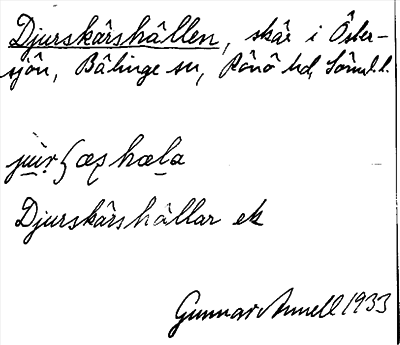 Djurskärshällen, skär i Öster-
sjön, Bälinge sn, Rönö hd, Söml.l.
Djurskärshällar ek
Gunnar Annell 1933